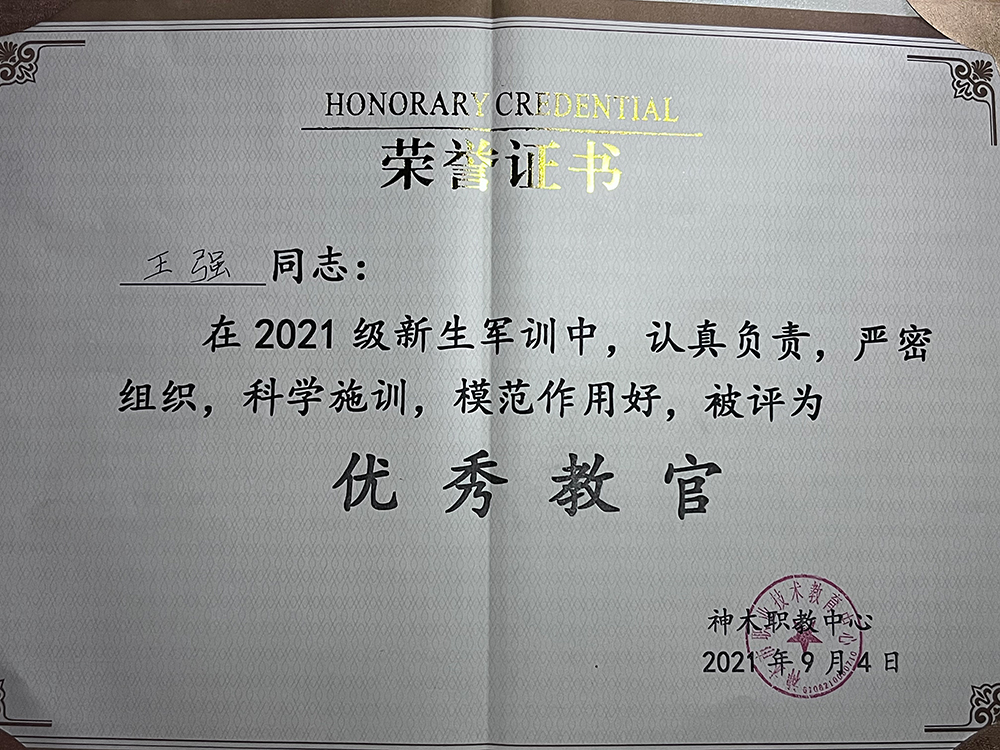 HONORARY CREDENTIAL
荣誉证书
王强 同志：
在2021级新生军训中，认真负责，严密
组织，科学施训，模范作用好，被评为
优秀教官
神木职教中心
2021年9月4日